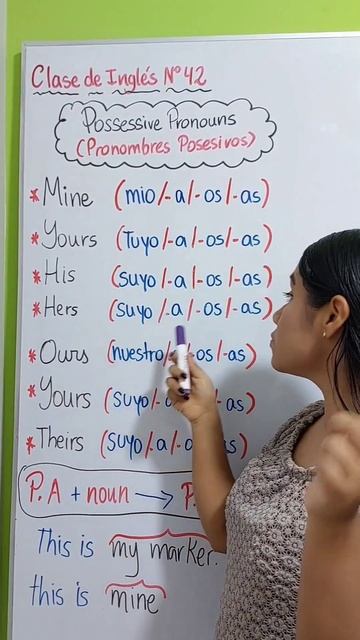 Clase de Inglés Nº 42
Possessive Pronouns
(Pronombres Posesivos)
* Mine (mio/-a/-os/-as)
* Yours (Tuyo/-a/-os/-as)
* His (suyo/-a/-os/-as)
* Hers (suyo/-a/-os/-as)
* Ours (nuestro/ -os/-as)
* Yours (suyo/-a as)
* Theirs (suyo/-a/-o -as)
P.A + noun → P.
This is my marker.
this is mine